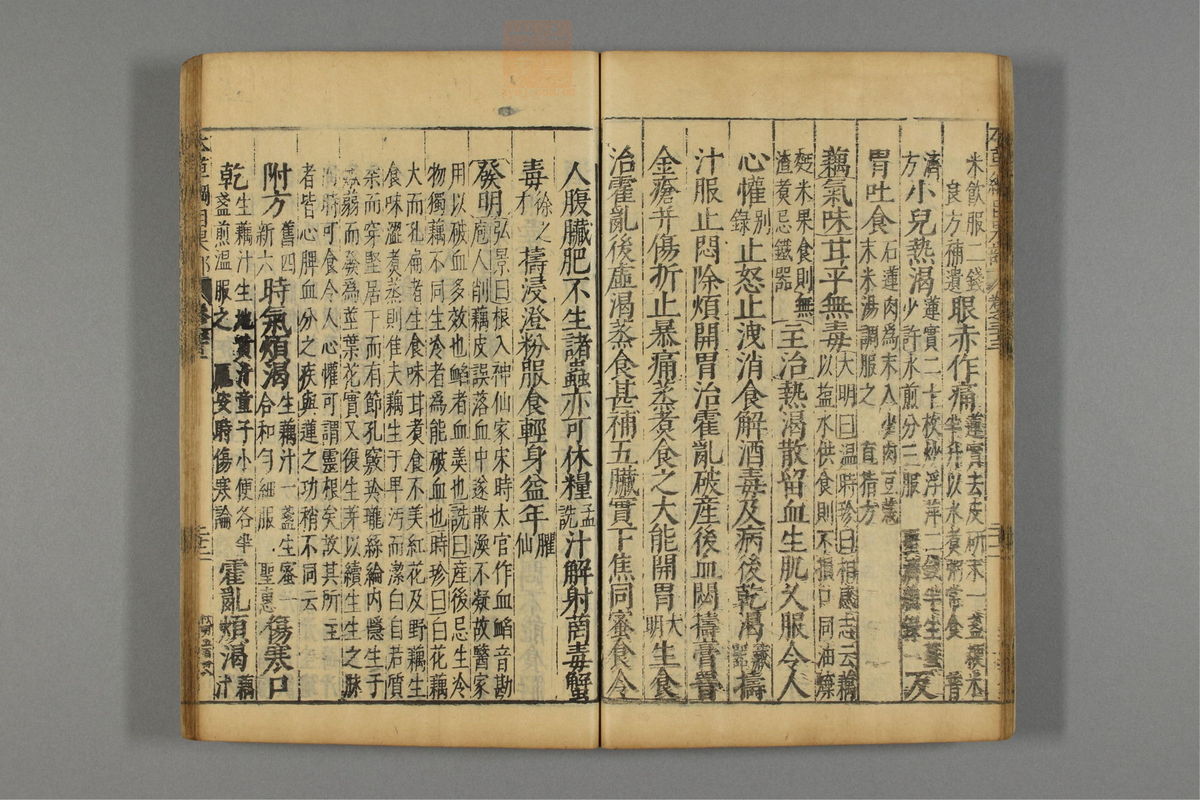 米飲服二錢良方補遺眼赤作痛蓮實去皮研末一盞粳米半升以水煮粥常食普
濟方小兒熱渴蓮實二十枚炒浮萍二錢半生薑少許水煎分三服聖濟總錄反
胃吐食石蓮肉為末入少肉豆蔻末米湯調服之直指方
藕氣味甘平無毒大明曰温時珍曰相感志云藕以盐水供食則不損口同油煠
麪米果食則無渣煮忌鐵器主治熱渴散留血生肌久服令人
心懽別錄止怒止洩消食解酒毒及病後乾渴藏器擣
汁服止悶除煩開胃治霍亂破産後血悶擣膏罯
金瘡幷傷折止暴痛蒸煮食之大能開胃大明生食
治霍亂後虛渴蒸食甚補五臓實下焦同蜜食令
人腹臓肥不生諸蟲亦可休糧孟詵汁解射菌毒蟹
毒徐之才擣浸澄粉服食輕身益年臞仙
發明弘景曰根入神仙家宋時太官作血䘓音勘庖人削藕皮誤落血中遂散渙不凝故醫家
用以破血多效也䘓者血羹也詵曰産後忌生冷
物獨藕不同生冷者為能破血也時珍曰白花藕
大而孔扁者生食味甘煮食不美紅花及野藕生
食味澀煮蒸則佳夫藕生于卑汚而潔白自若質
柔而穿堅居下而有節孔竅玲瓏絲綸内隱生于
嫩弱而發為莖葉花實又復生芽以續生生之脉
四時可食令人心懽可謂靈根矣故其所主
者皆心脾血分之疾與蓮之功稍不同云
附方舊四新六時氣煩渴生藕汁一盞生蜜一合和勻細服聖惠傷寒口
乾生藕汁生地黃汁童子小便各半盞煎温服之龐安時傷寒論霍亂煩渴藕汁